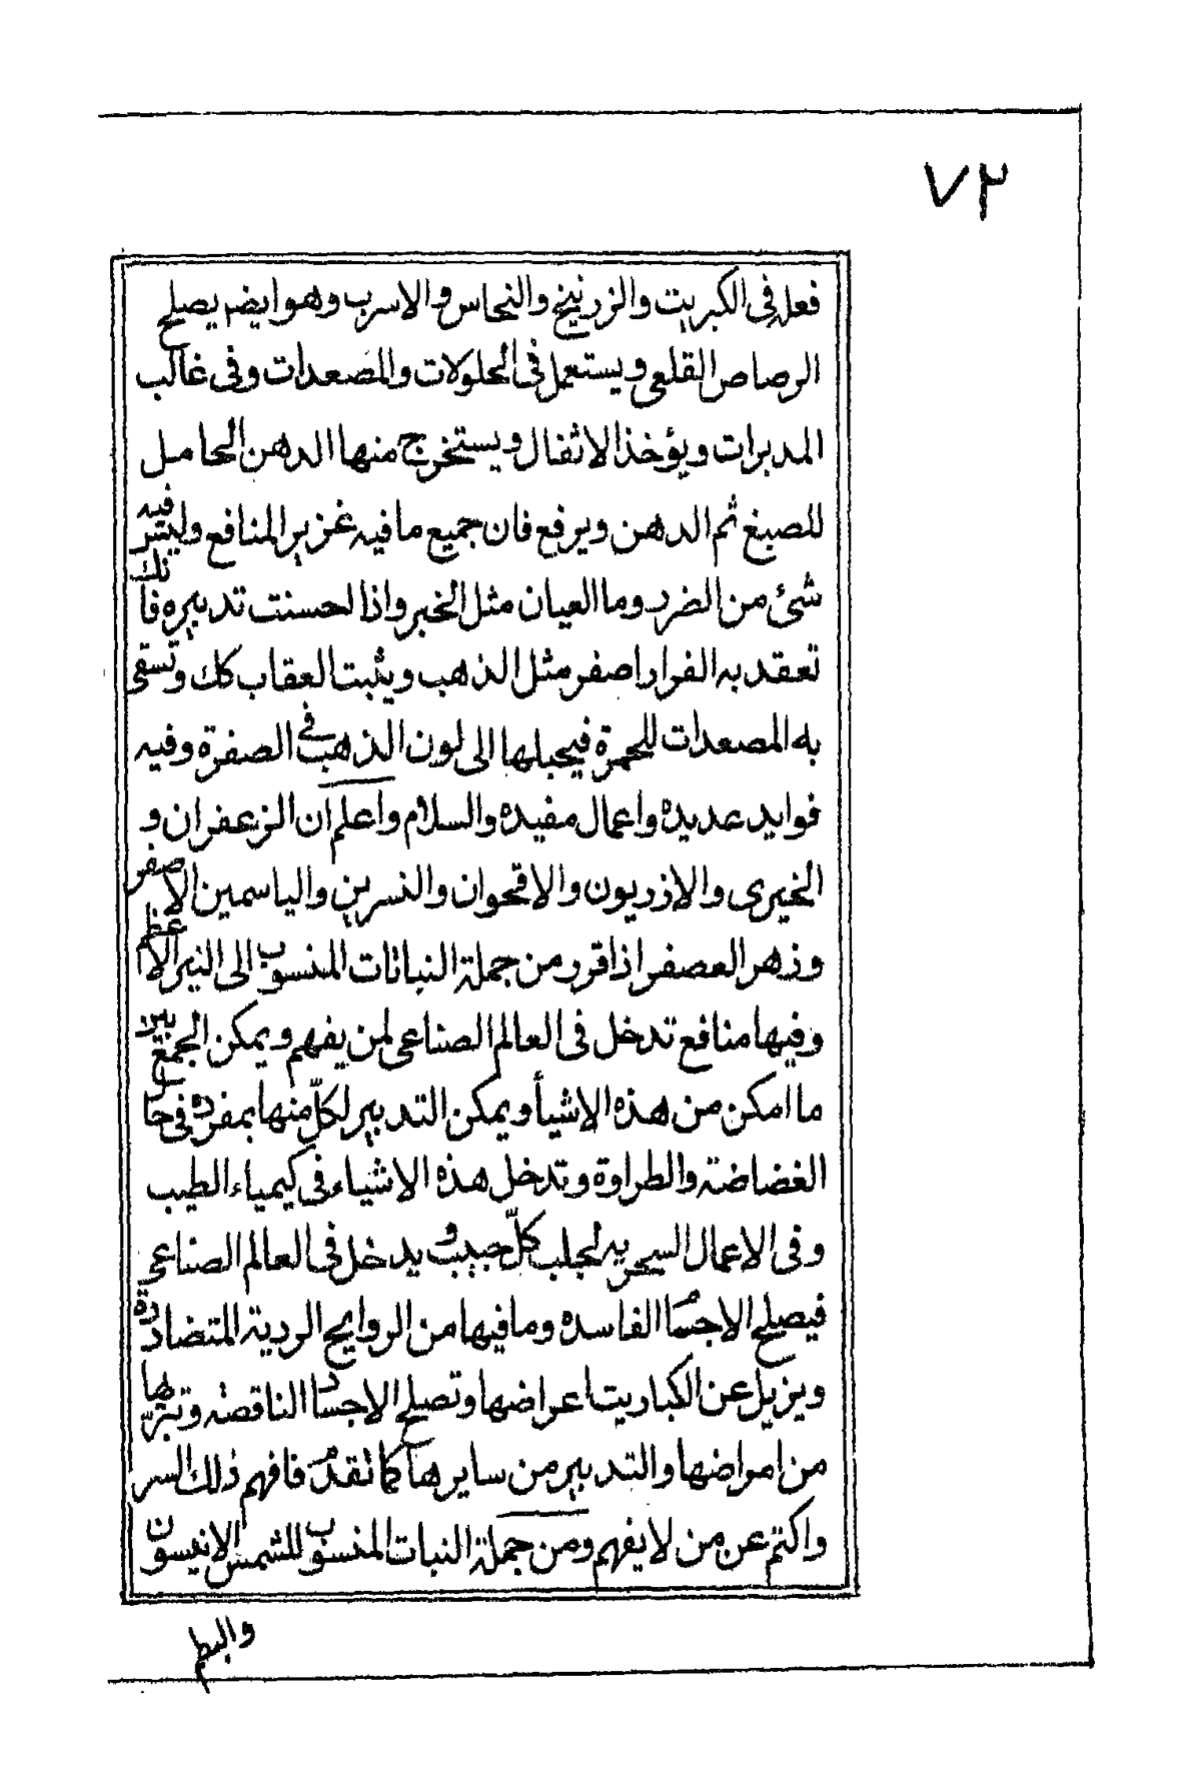 ٧٢
فعله فى الكبريت والزرنيخ والنحاس والاسرب وهو ايضم يصلح
الرصاص القلعى ويستعمل فى المحلولات والمصعدات وفى غالب
المدبرات ويؤخذ الاثفال ويستخرج منها الدهن الحامل
للصبغ ثم الدهن ويرفع فان جميع ما فيه غزير المنافع وليس فيه
شئ من الضرر وما العيان مثل الخبر واذا احسنت تدبيره فانك
تعقد به الفرار اصفر مثل الذهب ويثبت العقاب كك وتسقى
به المصعدات للحمرة فيحيلها الى لون الذهب فى الصفرة وفيه
فوايد عديده واعمال مفيده والسلام واعلم ان الزعفران و
الخيرى والاذريون والاقحوان والنسرين والياسمين الاصفر
وزهر العصفر اذا قرر من جملة النباتات المنسوب الى النير الاعظم
وفيها منافع تدخل فى العالم الصناعى لمن يفهم ويمكن الجمع بين
ما امكن من هذه الاشيأ ويمكن التدبير لكلّ منها بمفرده فى حال
الغضاضة والطراوة وتدخل هذه الاشياء فى كيمياء الطيب
وفى الاعمال السحريه لجلب كلّ حبيب ويدخل فى العالم الصناعى
فيصلح الاجسام الفاسده وما فيها من الروايح الردية المتضادة
ويزيل عن الكباريت اعراضها وتصلح الاجساد الناقصة وتبرّيها
من امراضها والتدبير من سايرها كما تقدم فافهم ذلك السر
واكتم عن من لا يفهم ومن جملة النبات المنسوب للشمس الانيسون
والبطم